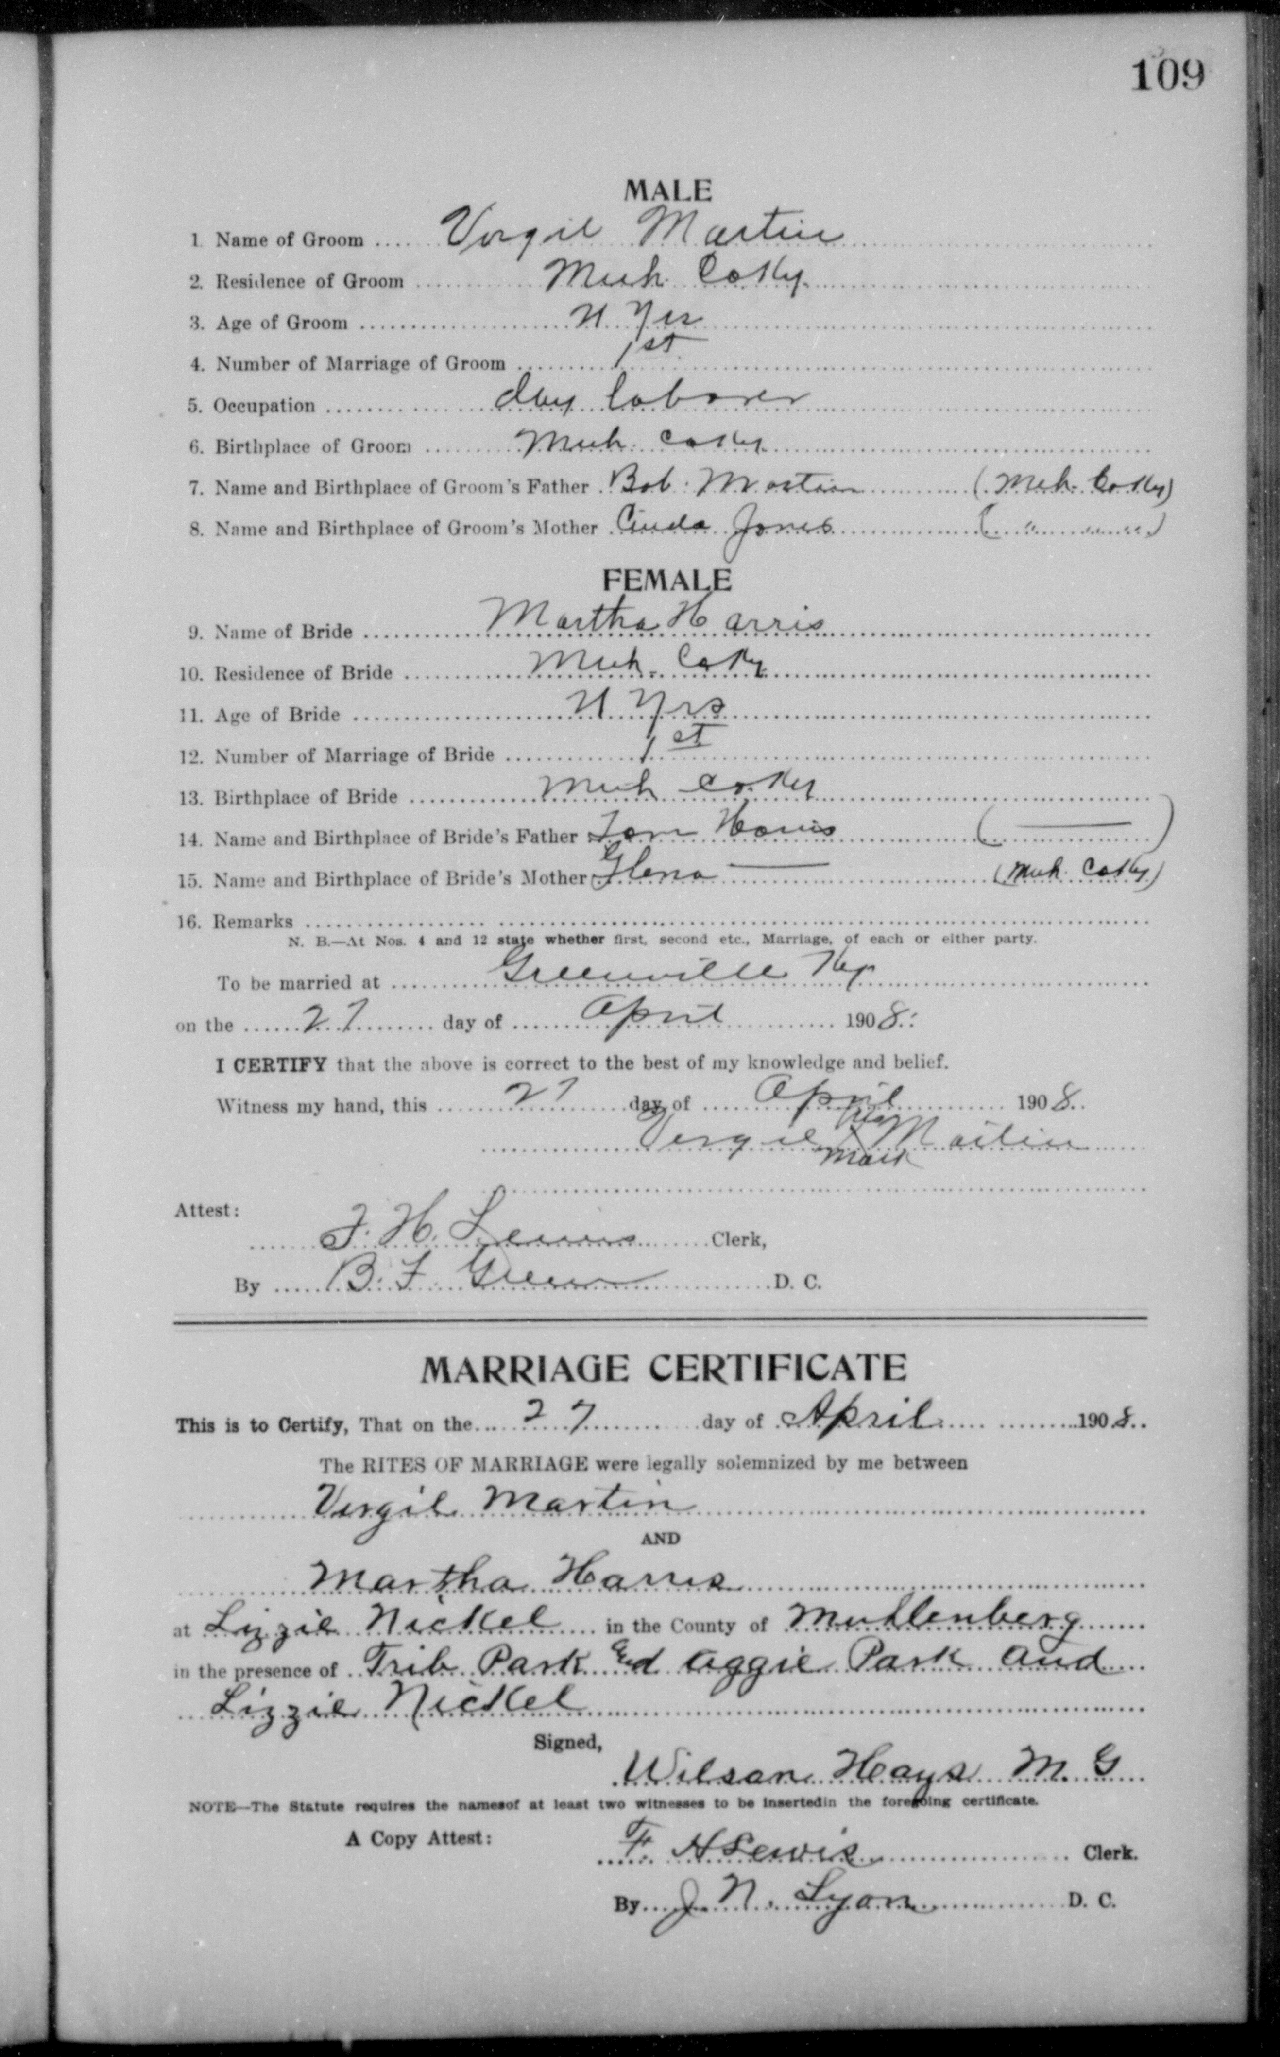 109
MALE
1 Name of Groom .... Vergil Martin
2. Residence of Groom .... Muh Co Ky.
3. Age of Groom .... 21 Yrs
4. Number of Marriage of Groom .... 1st
5. Occupation .... day laborer
6. Birthplace of Groom .... Muh. Co Ky.
7. Name and Birthplace of Groom's Father . Bob Martin .... (Muh. Co Ky)
8. Name and Birthplace of Groom's Mother . Cinda Jones .... ( " " " )
FEMALE
9. Name of Bride .... Martha Harris
10. Residence of Bride .... Muh. Co Ky
11. Age of Bride .... 21 Yrs
12. Number of Marriage of Bride .... 1st
13. Birthplace of Bride .... Muh Co. Ky
14. Name and Birthplace of Bride's Father . Tom Harris .... ( — )
15. Name and Birthplace of Bride's Mother Glena — .... (Muh. Co Ky)
16. Remarks ....
N. B.—At Nos. 4 and 12 state whether first, second etc., Marriage, of each or either party.
To be married at .... Greenville Ky
on the .... 27 .... day of .... April .... 1908.
I CERTIFY that the above is correct to the best of my knowledge and belief.
Witness my hand, this .... 27 .... day of .... April .... 1908.
his
Vergil X Martin
mark
Attest:
F. H. Lewis .... Clerk,
By .... B. F. Green .... D. C.
MARRIAGE CERTIFICATE
This is to Certify, That on the .... 27 .... day of . April .... 1908.
The RITES OF MARRIAGE were legally solemnized by me between
Vergil Martin
AND
Martha Harris
at Lizzie Nickel .... in the County of Muhlenberg
in the presence of . Trib Park Ed Aggie Park and
Lizzie Nickel
Signed,
Wilson Hays M. G
NOTE—The Statute requires the namesof at least two witnesses to be insertedin the foregoing certificate.
A Copy Attest:
F. H Lewis .... Clerk.
By .... J. N. Lyon .... D. C.